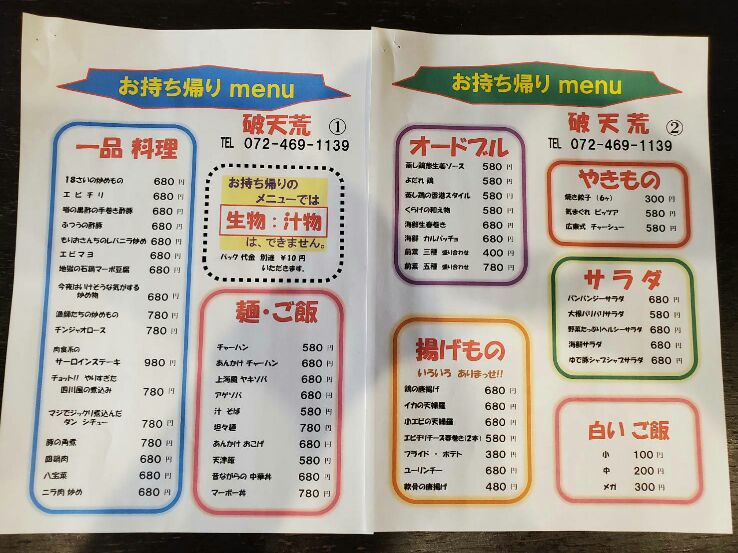 お持ち帰り menu
破天荒 ①
TEL 072-469-1139
一品 料理
18さいの炒めもの 680円
エビチリ 680円
噂の黒酢の手巻き酢豚 680円
ふつうの酢豚 680円
もりおさんちのレバニラ炒め 680円
エビマヨ 680円
地獄の石鍋マーボ豆腐 680円
今夜はいけそうな気がする
炒め物 680円
漁師たちの炒めもの 780円
チンジャオロース 780円
肉食系の
サーロインステーキ 980円
チョット!! やりすぎた
四川風の煮込み 780円
マジでジックリ煮込んだ
タン シチュー 780円
豚の角煮 780円
回鍋肉 680円
八宝菜 680円
ニラ肉 炒め 680円
お持ち帰りの
メニューでは
生物:汁物
は、できません。
パック 代金 別途 ¥10円
いただきます。
麺・ご飯
チャーハン 580円
あんかけ チャーハン 680円
上海風 ヤキソバ 680円
アゲソバ 680円
汁 そば 580円
坦々麺 780円
あんかけ おこげ 680円
天津飯 580円
昔ながらの 中華丼 680円
マーボー丼 780円
お持ち帰り menu
破天荒 ②
TEL 072-469-1139
オードブル
蒸し鶏葱生姜ソース 580円
よだれ 鶏 580円
蒸し鶏の香港スタイル 580円
くらげの和え物 580円
海鮮生春巻き 680円
海鮮 カルパッチョ 680円
前菜 三種 盛り合わせ 400円
前菜 五種 盛り合わせ 780円
揚げもの
いろいろ ありまっせ!!
鶏の唐揚げ 680円
イカの天婦羅 680円
小エビの天婦羅 680円
エビチリチーズ春巻き(2本) 580円
フライド・ポテト 380円
ユーリンチー 680円
軟骨の唐揚げ 480円
やきもの
焼き餃子(6ヶ) 300円
気まぐれ ピッツア 580円
広東式 チャーシュー 580円
サラダ
バンバンジーサラダ 680円
大根パリパリサラダ 580円
野菜たっぷりヘルシーサラダ 680円
海鮮サラダ 680円
ゆで豚シャブシャブサラダ 680円
白い ご飯
小 100円
中 200円
メガ 300円